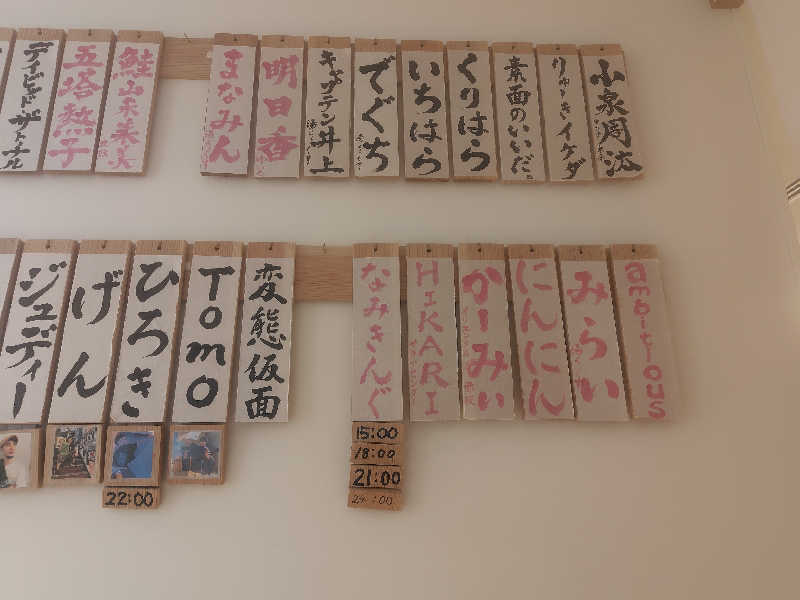 小泉周法
りゅーきイケダ
素面のいいだ。
くりはら
いちはら
でぐち
キャプテン井上
明日香
まなみん
鮭山未来
五塔熱子
デイビッドザトナル
ambitious
みらい
にんにん
かーみぃ
HIKARI
なみきんぐ
変態仮面
Tomo
ひろき
げん
ジュディー
15:00
18:00
21:00
24:00
22:00